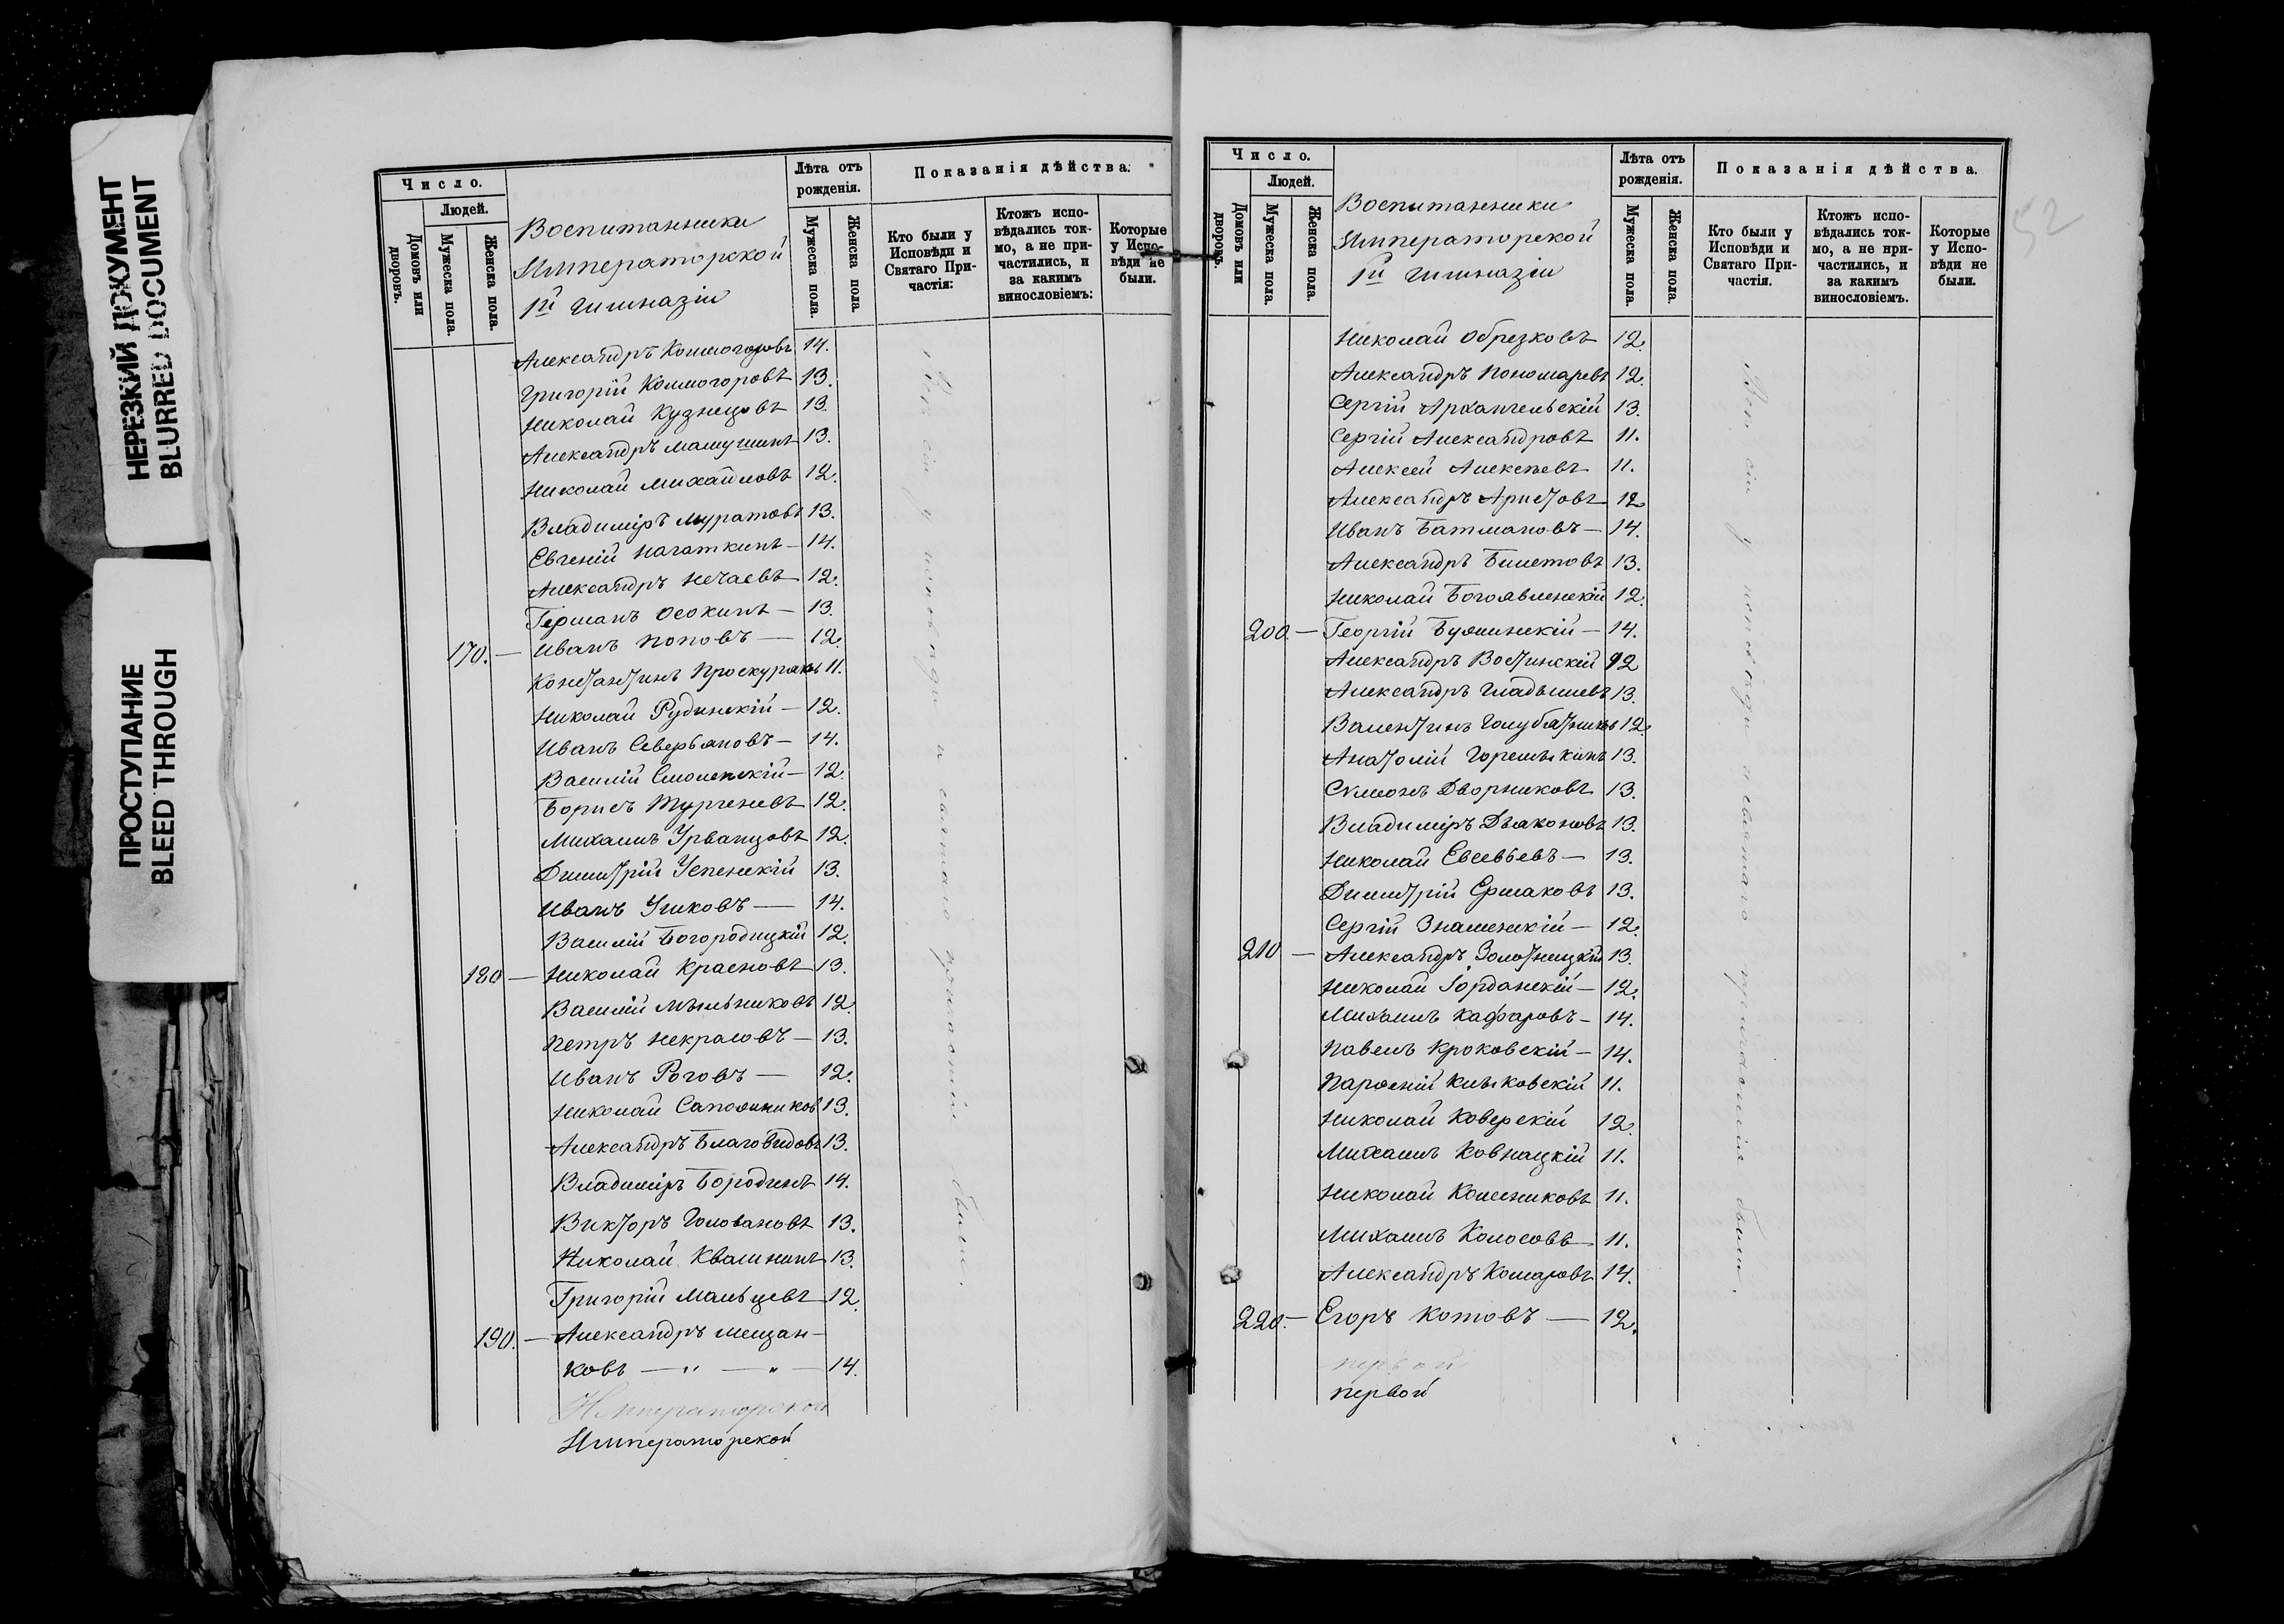 НЕРЕЗКИЙ ДОКУМЕНТ
BLURRED DOCUMENT
ПРОСТУПАНИЕ
BLEED THROUGH
Число.
Людей.
Домовъ или дворовъ.
Мужеска пола.
Женска пола.
Воспитанники
Императорской
1й гимназіи
Лѣта отъ рожденія.
Мужеска пола.
Женска пола.
Показанія дѣйства.
Кто были у Исповѣди и Святаго Причастія:
Ктожъ исповѣдались токмо, а не причастились, и за какимъ винословіемъ:
Которые у Исповѣди не были.
Александръ Колмогоровъ 14.
Григорій Колмогоровъ 13.
Николай Кузнецовъ 13.
Александръ Мамушинъ 13.
Николай Михайловъ 12.
Владиміръ Муратовъ 13.
Евгеній Нагаткинъ — 14.
Александръ Нечаевъ 12.
Германъ Осокинъ — 13.
170. — Иванъ Поповъ — 12.
Константинъ 11.
Николай Рудинскій — 12.
Иванъ Северьяновъ — 14.
Василій Смоленскій — 12.
Борисъ Тургеневъ 12.
Михаилъ Урванцовъ 12.
Димитрій Успенскій 13.
Иванъ Ушковъ — 14.
Василій Богородицкій 12.
180 — Николай Красновъ 13.
Василій Мыльниковъ 12.
Петръ Некрасовъ — 13.
Иванъ Роговъ — 12.
Николай Сапожников 13.
Александръ Благовидовъ 13.
Владиміръ Бородинъ 14.
Викторъ Головановъ 13.
Николай Квашнинъ 13.
Григорій Мальцевъ 12.
190. — Александръ Мещан-
ковъ — " — " — 14.
Императорской
Императорской
всѣ сіи у исповѣди и святаго причастія были.
52
Число.
Людей.
Домовъ или дворовъ.
Мужеска пола.
Женска пола.
Воспитанники
Императорской
1й гимназіи
Лѣта отъ рожденія.
Мужеска пола.
Женска пола.
Показанія дѣйства.
Кто были у Исповѣди и Святаго Причастія.
Ктожъ исповѣдались токмо, а не причастились, и за какимъ винословіемъ.
Которые у Исповѣди не были.
Николай Обрезковъ 12.
Александръ Пономаревъ 12.
Сергій Архангельскій 13.
Сергій Александровъ 11.
Алексей Алексѣевъ 11.
Александръ Аристовъ 12
Иванъ Батмановъ — 14.
Александръ Билетовъ 13.
Николай Богоявленскій 12.
200. — Георгій 14.
Александръ 12
Александръ Гладышевъ 13.
Валентинъ Голубятников 12.
Анатолій Горемыкинъ 13.
Сѵмеонъ Дворниковъ 13.
Владиміръ Дьяконовъ 13.
Николай Евсевьевъ — 13.
Димитрій Ермаковъ 13.
Сергій Знаменскій — 12.
210 — Александръ Золотницкій 13.
Николай Іорданскій — 12.
Михаилъ Кафаровъ — 14.
Павелъ Кроковскій — 14.
11.
Николай Коверскій 12.
Михаилъ Ковнацкій 11.
Николай Колесниковъ 11.
Михаилъ Колосовъ — 11.
Александръ Комаровъ 14.
220. — Егоръ Котовъ — 12.
первой
первой